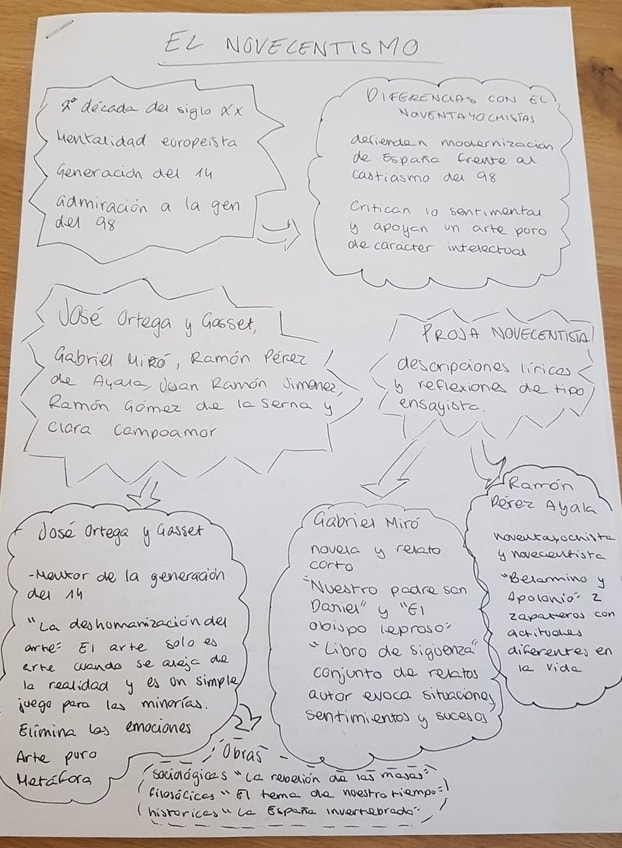 EL NOVECENTISMO
2ª década del siglo XX
Mentalidad europeista
Generación del 14
admiración a la gen
del 98
DIFERENCIAS CON EL
NOVENTAYOCHISTAS
defienden modernización
de España frente al
castiasmo del 98
Critican lo sentimental
y apoyan un arte puro
de carácter intelectual
José Ortega y Gasset,
Gabriel Miró, Ramón Pérez
de Ayala, Juan Ramón Jimenez,
Ramón Gómez de la Serna y
Clara Campoamor
PROSA NOVECENTISTA
descripciones líricas
y reflexiones de tipo
ensayista.
José Ortega y Gasset
-Mentor de la generación
del 14
"La deshumanización del
arte" El arte solo es
arte cuando se aleja de
la realidad y es un simple
juego para las minorías.
Elimina las emociones
Arte puro
Metáfora
Gabriel Miró
novela y relato
corto
"Nuestro padre san
Daniel" y "El
obispo leproso"
"Libro de Siguenza"
conjunto de relatos
autor evoca situaciones
sentimientos y sucesos
Ramón
Pérez Ayala
noventayochista
y novecentista
"Belarmino y
Apolonio" 2
zapateros con
actitudes
diferentes en
la vida
Obras
sociológicas "La rebelión de las masas"
filosóficas "El tema de nuestro tiempo"
historicas "La España invertebrada"